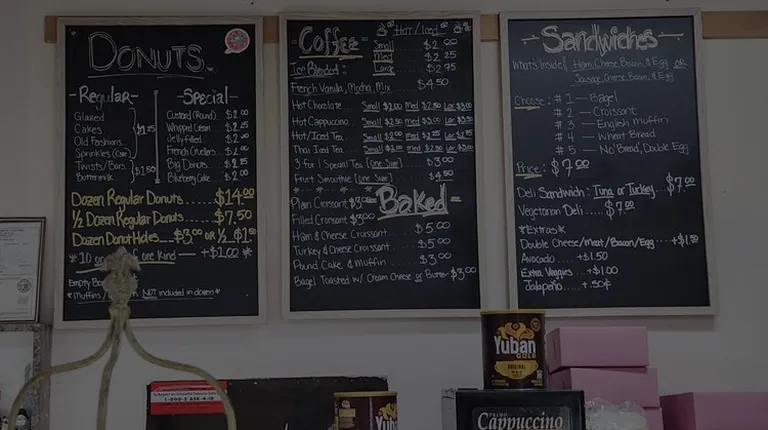 DONUTS
-Regular-
Glazed
Cakes
Old Fashions
Sprinkles (Cake)
$1.25
Twists/Bars
Buttermilk
$1.50
-Special-
Custard (Round) $2.00
Whipped Cream $2.25
Jelly filled $2.00
French Crullers $2.00
Big Donuts $2.25
Blueberry Cake $2.00
Dozen Regular Donuts ...... $14.00
1/2 Dozen Regular Donuts ..... $7.50
Dozen Donut Holes ... $3.00 or 1/2 $1.50
*10 or of one Kind — +$1.00*
Empty
*Muffins/ NOT included in dozen*
-Coffee-
Hot / Iced
Small $2.00
Med $2.25
Large $2.75
Ice Blended:
French Vanilla, Mocha, Mix $4.50
Hot Chocolate Small $2.00 Med $2.50 Lar $3.00
Hot Cappuccino Small $2.50 Med $3.00
Hot/Iced Tea
Thai Iced Tea
3 for 1 Special Tea [One Size] $3.00
Fruit Smoothie [One Size] $4.50
=Baked=
Plain Croissant $3.00
Filled Croissant $3.00
Ham & Cheese Croissant $5.00
Turkey & Cheese Croissant $5.00
Pound Cake & Muffin $3.00
Bagel Toasted w/ Cream Cheese or Butter $3.00
Sandwiches
What's Inside: Ham, Cheese, Bacon, & Egg or
Sausage, Cheese, Bacon, & Egg
Choose: #1 — Bagel
#2 — Croissant
#3 — English Muffin
#4 — Wheat Bread
#5 — No 'Bread', Double Egg
Price: $7.00
Deli Sandwich: Tuna or Turkey ... $7.00
Vegetarian Deli ..... $7.00
*Extras*
Double Cheese/Meat/Bacon/Egg .... +$1.50
Avocado .... +$1.50
Extra Veggies .. +$1.00
Jalapeño .... +.50¢
Yuban
GOLD
ORIGINAL
Yuban
Cappuccino